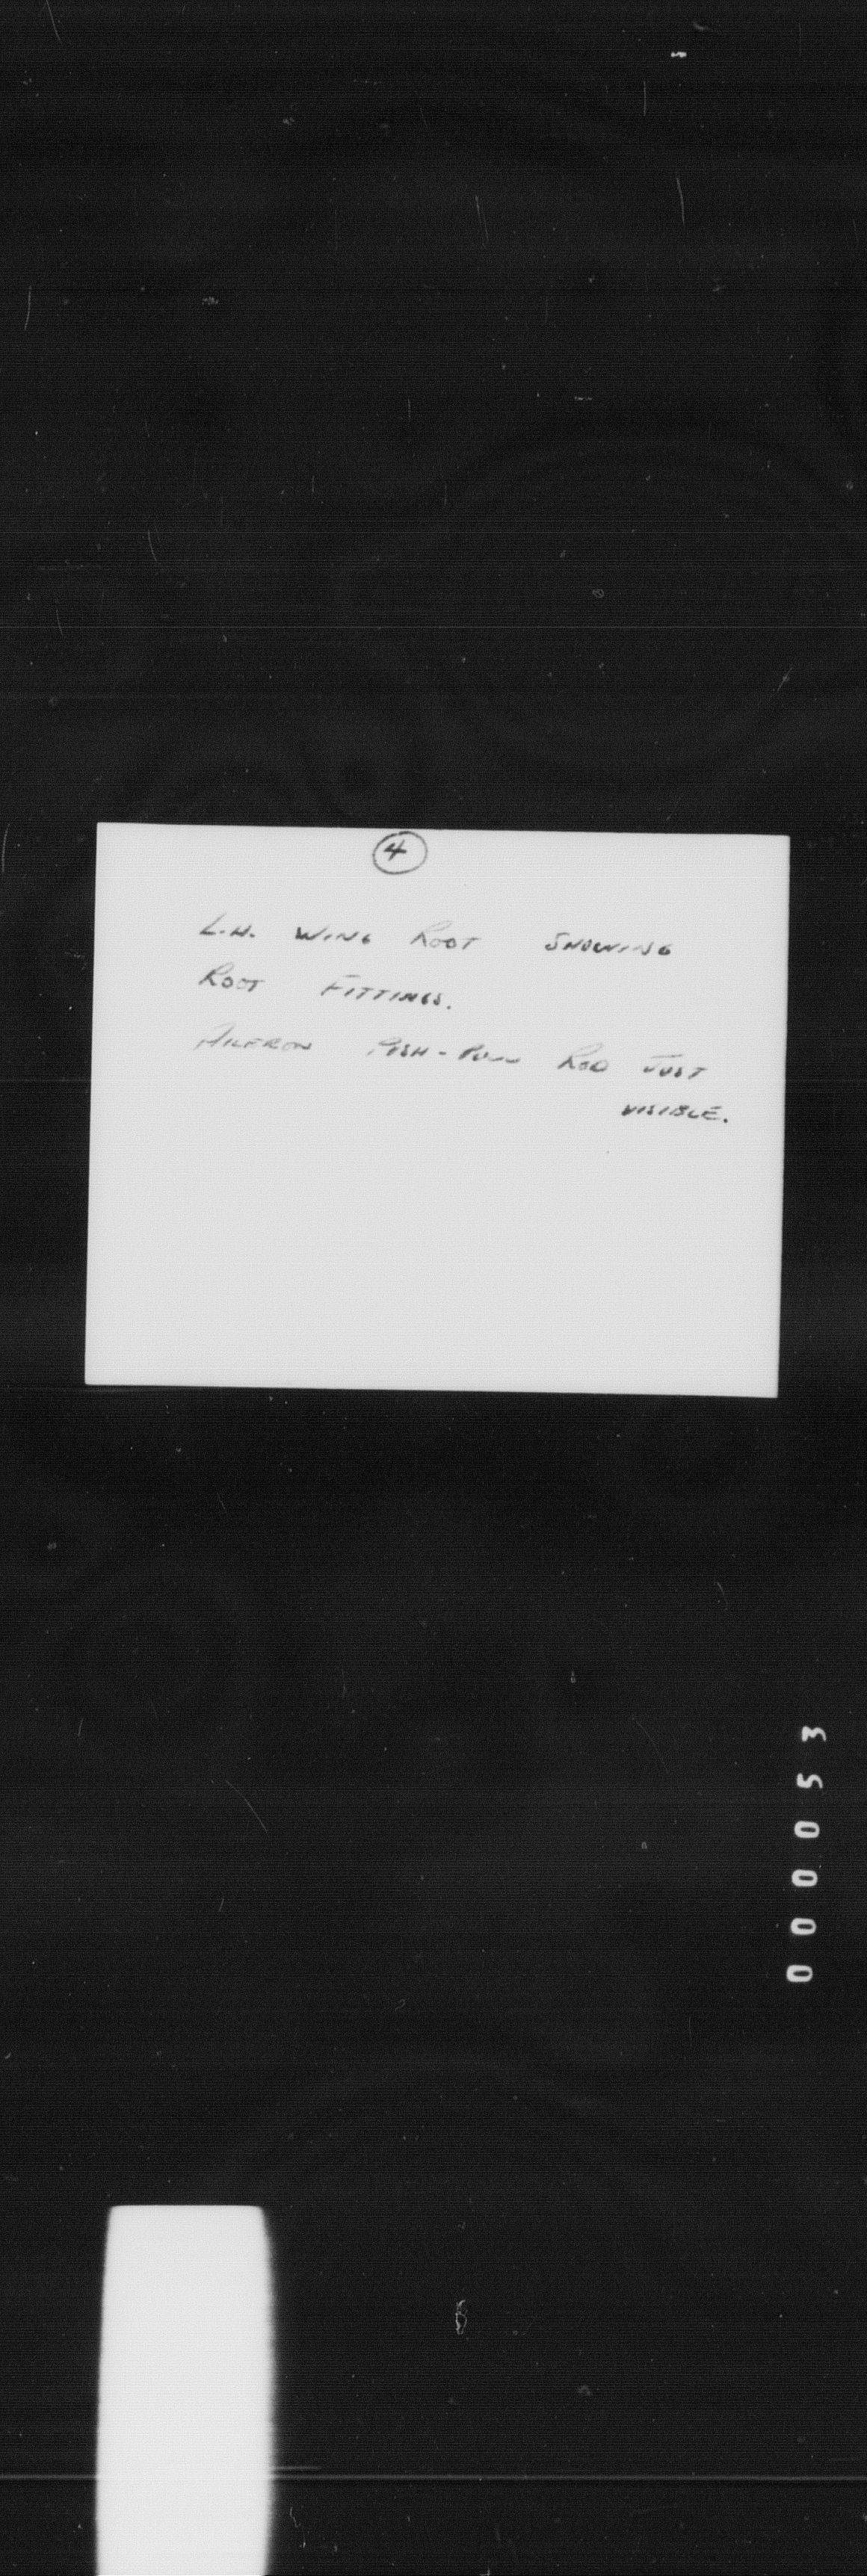 4
L.H. WING ROOT SHOWING
ROOT FITTINGS.
AILERON PUSH-PULL ROD JUST
VISIBLE.
000053